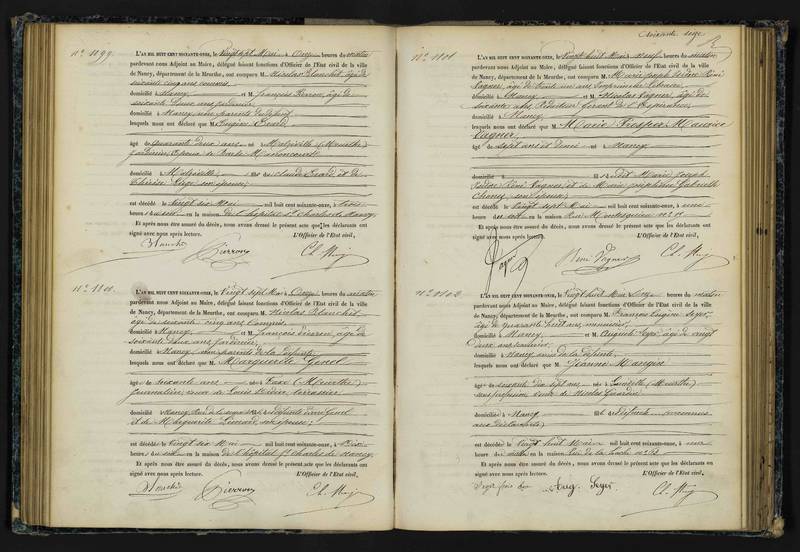 Soixante seize
N° 1099.
L'AN MIL HUIT CENT SOIXANTE-ONZE, le Vingt sept Mai à Onze heures du matin
pardevant nous Adjoint au Maire, délégué faisant fonctions d'Officier de l'État civil de la ville
de Nancy, département de la Meurthe, ont comparu M. Nicolas Blanchet, âgé de
soixante cinq ans
domicilié à Nancy et M. François Pierron, âgé de
soixante deux ans jardinier
domicilié à Nancy non parents du défunt
lesquels nous ont déclaré que M. Eugène Erard
âgé de quarante deux ans né à Malzéville (Meurthe)
jardinier, époux de
domicilié à Malzéville fils de Claude Erard et de
Thérèse son épouse;
est décédé le vingt six Mai mil huit cent soixante-onze, à trois
heures du soir en la maison de l'hôpital St Charles de Nancy
Et après nous être assuré du décès, nous avons dressé le présent acte que les déclarants ont
signé avec nous après lecture. L'Officier de l'État civil,
Blanchet Pierron
N° 1100.
L'AN MIL HUIT CENT SOIXANTE-ONZE, le Vingt sept Mai à Onze heures du matin
pardevant nous Adjoint au Maire, délégué faisant fonctions d'Officier de l'État civil de la ville
de Nancy, département de la Meurthe, ont comparu M. Nicolas Blanchet
âgé de soixante cinq ans
domicilié à Nancy et M. François Pierron, âgé de
soixante deux ans jardinier,
domicilié à Nancy non parents de la défunte
lesquels nous ont déclaré que Marguerite
âgée de soixante ans née à (Meurthe)
journalière, veuve de Louis terrassier
domiciliée à Nancy
et de Marguerite son épouse;
est décédée le vingt six Mai mil huit cent soixante-onze, à dix
heures du soir en la maison de l'hôpital St Charles de Nancy
Et après nous être assuré du décès, nous avons dressé le présent acte que les déclarants ont
signé avec nous après lecture. L'Officier de l'État civil,
Blanchet Pierron
N° 1101
L'AN MIL HUIT CENT SOIXANTE-ONZE, le Vingt huit Mai à neuf heures du matin
pardevant nous Adjoint au Maire, délégué faisant fonctions d'Officier de l'État civil de la ville
de Nancy, département de la Meurthe, ont comparu M. Marie Joseph René
Vagner, âgé de trente un ans Imprimeur Libraire
domicilié à Nancy et M. Nicolas Vagner, âgé de
soixante ans, Rédacteur gérant de l'Espérance
domicilié à Nancy
lesquels nous ont déclaré que M. Marie Prosper Maurice
Vagner
âgé de sept ans et demi né à Nancy
domicilié à fils dudit Marie Joseph
René Vagner et de Marie Joséphine Gabrielle
son épouse;
est décédé le vingt sept Mai mil huit cent soixante-onze, à onze
heures du soir en la maison Rue Montesquieu n°
Et après nous être assuré du décès, nous avons dressé le présent acte que les déclarants ont
signé avec nous après lecture. L'Officier de l'État civil,
Vagner René Vagner
N° 1102
L'AN MIL HUIT CENT SOIXANTE-ONZE, le Vingt huit Mai à onze heures du matin
pardevant nous Adjoint au Maire, délégué faisant fonctions d'Officier de l'État civil de la ville
de Nancy, département de la Meurthe, ont comparu M. François Eugène Seyer,
âgé de quarante huit ans, menuisier,
domicilié à Nancy et M. Auguste Seyer âgé de vingt
deux ans
domicilié à Nancy amis de la défunte,
lesquels nous ont déclaré que Jeanne Mangin
âgée de soixante dix sept ans née à Lunéville (Meurthe)
sans profession veuve de Nicolas
domiciliée à Nancy fille de défunts (inconnus
aux déclarants)
est décédée le Vingt huit Mai mil huit cent soixante-onze, à une
heure du matin en la maison Rue n°
Et après nous être assuré du décès, nous avons dressé le présent acte que les déclarants ont
signé avec nous après lecture. L'Officier de l'État civil,
Aug. Seyer